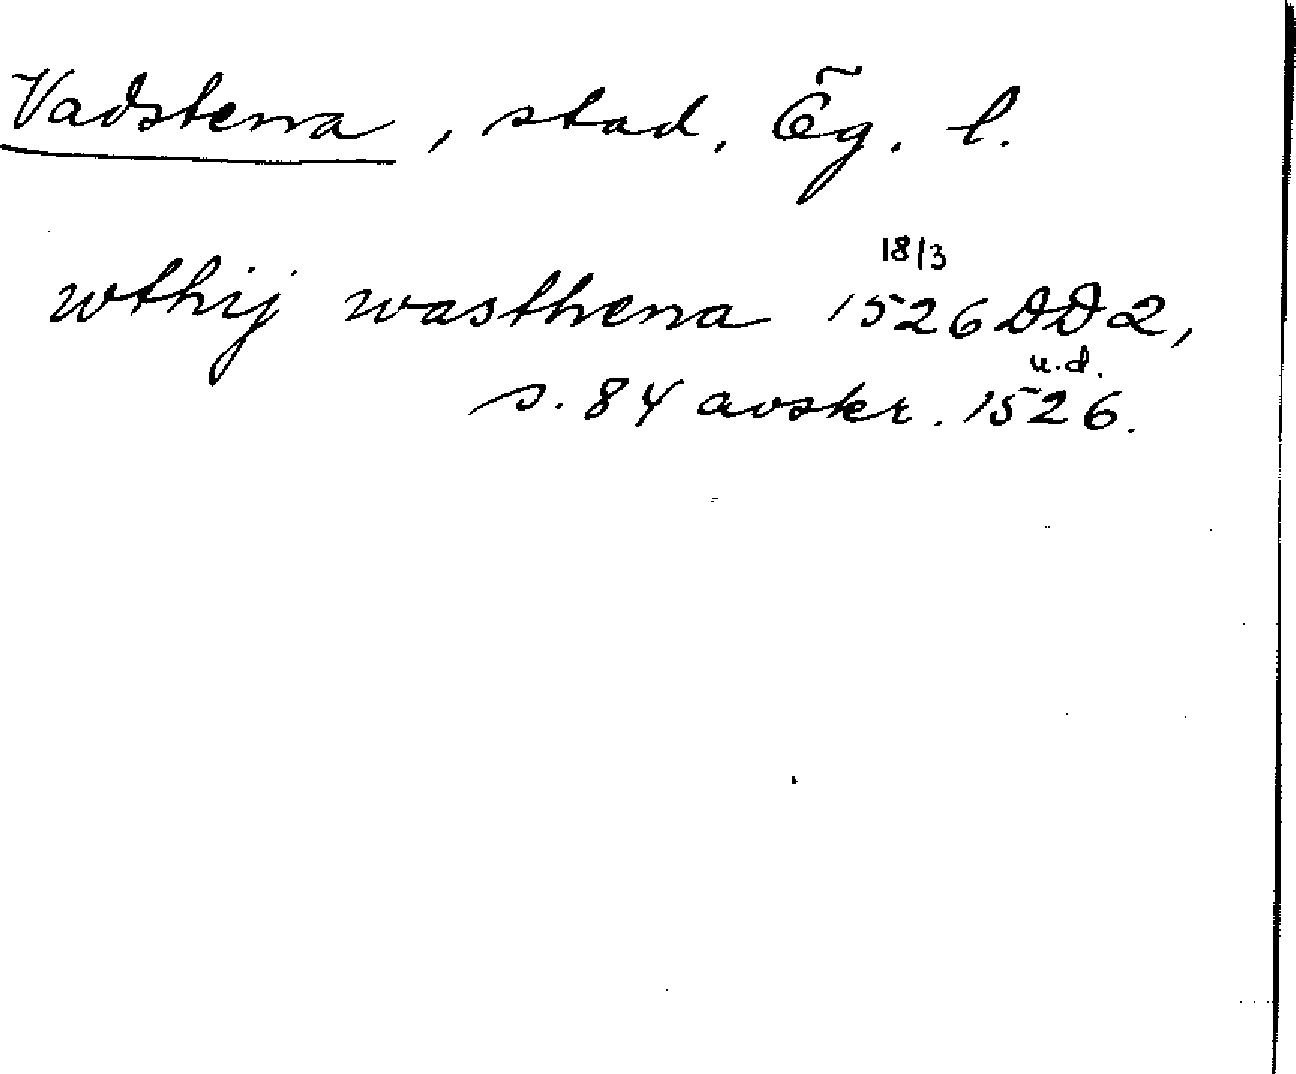 Vadstena, stad. Ög. l.
wthij wasthena 18/3 1526 DD 2,
s. 84 avskr. u.d. 1526.